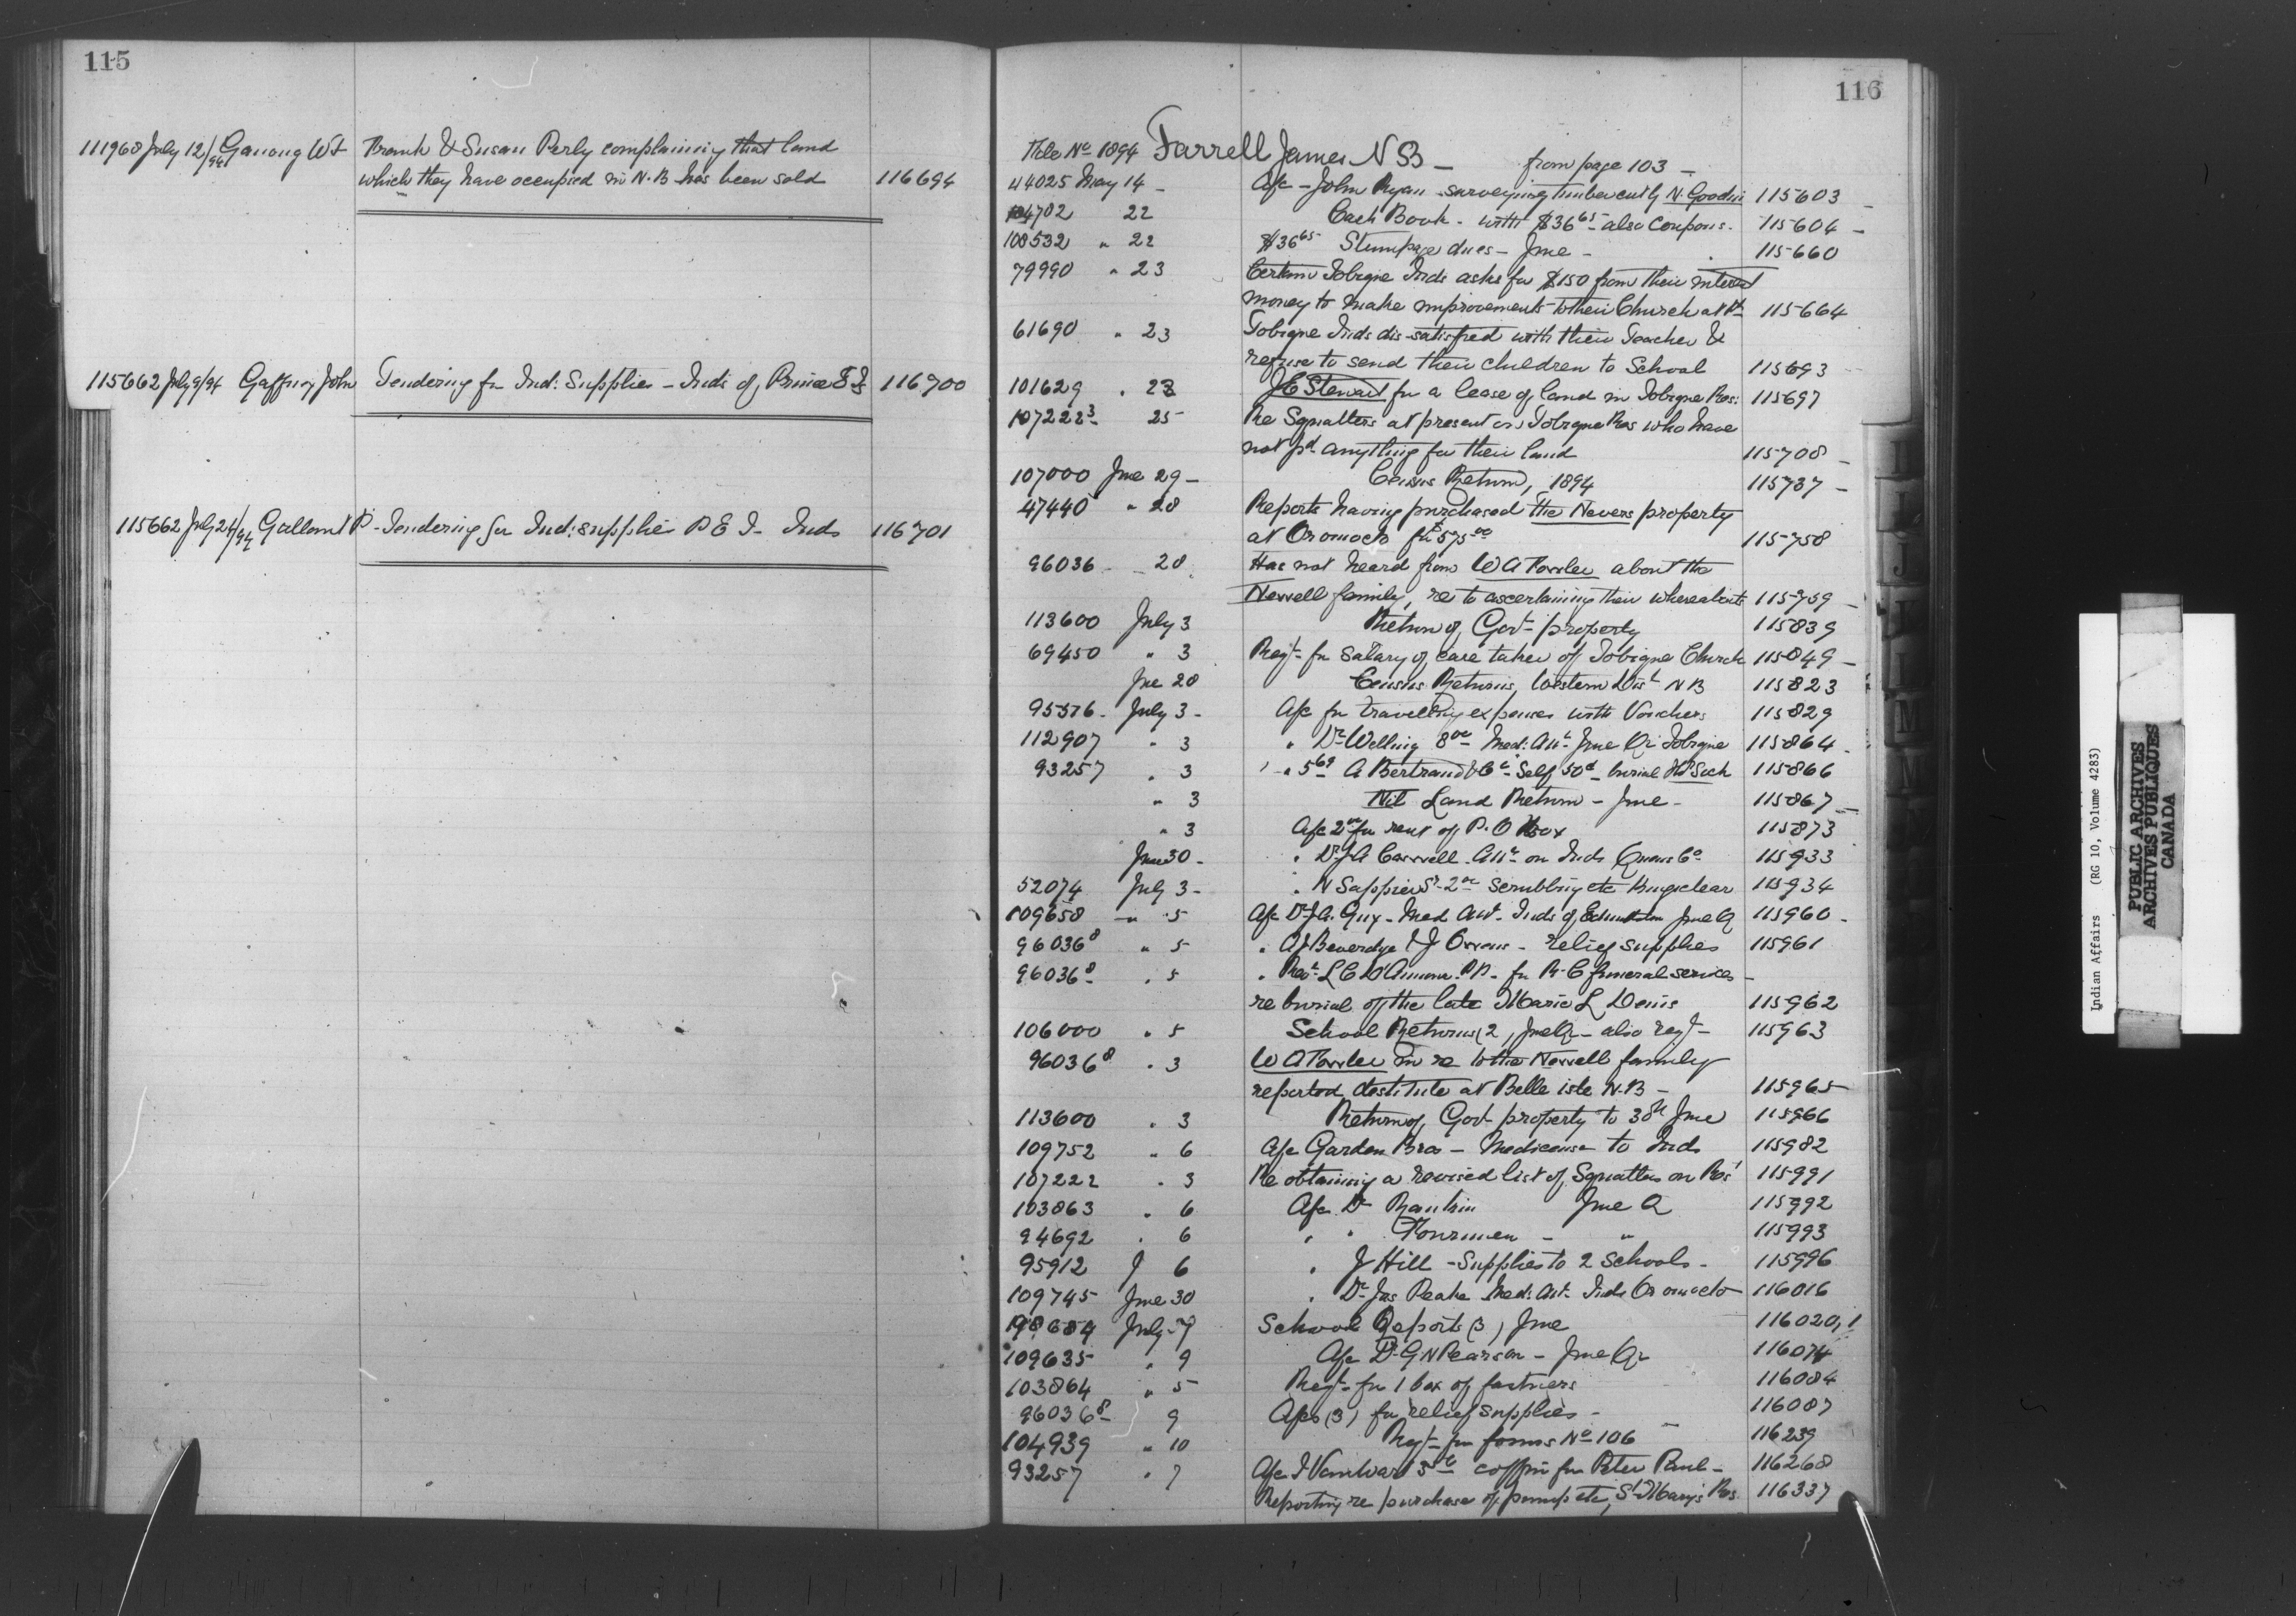 115
111968 July 12/94 Ganong W F Frank & Susan Perly complaining that land
which they have occupied in N.B has been sold 116694
115662 July 9/94 Gaffney John Tendering for Ind: Supplies - Inds of Prince E I 116700
115662 July 24/94 Gallant P - Tendering for Ind: supplies P E I - Inds 116701
116
File No 1894 Farrell James N B - from page 103 -
44025 May 14 - A/c - John Ryan surveying timber cut by N. Goodin 115603
104702 22 Cash Book - with $36 65 - also Coupons. 115604
108532 " 22 $36 65 Stumpage dues - June - 115660
79990 " 23 Certain Tobique Inds asks for $150 from their interest
money to make improvements to their Church at 115664
61690 " 23 Tobique Inds dis-satisfied with their Teacher &
refuse to send their children to School 115693
101629 " 23 J E Stewart for a lease of land in Tobique Res: 115697
107222 3 25 Re Squatters at present on Tobique Res who have
not pd anything for their land 115708
107000 June 29 - Census Return, 1894 115737
47440 " 28 Reports having purchased the Nevers property
at Oromocto for $575 00 115758
96036 - 28 Has not heard from W A about the
Newell family, re to ascertaining their whereabouts 115759
113600 July 3 Return of Govt property 115839
69450 " 3 Reqt for salary of care taker of Tobique Church 115849
Jne 28 Census Returns, Western Dist N B 115823
95576 - July 3 - A/c for travelling expenses with Vouchers 115829
112907 " 3 " Dr Welling 8 00 Med: Att June Qr Tobique 115864
93257 " 3 " 5 69 A Bertrand & Co Self 50 - burial 115866
" 3 Nil Land Return - June - 115867
" 3 A/c 2 00 for rent of P.O Box 115873
June 30 - " Dr J A Carvell - Att on Inds Queens Co 115933
52074 July 3 - " N Sappier Sr - 2 00 Scrubbing etc Kingsclear 115934
109658 " 5 A/c Dr J A. Guy - Med Att - Inds of Edmundston June Q 115960
96036 8 " 5 " A J Beverdge & J Owens - relief supplies 115961
96036 8 " 5 " Revd L C D'Amour P.P. - for R.C funeral services -
re burial of the late Marie L Denis 115962
106000 " 5 School Returns (2, June Qr - also reqt - 115963
96036 8 " 3 W A in re to the Newell family
reported destitute at Belle isle N.B - 115965
113600 " 3 Return of Govt property to 30th June 115966
109752 " 6 A/c Garden Bros - Medicines to Inds 115982
107222 " 3 Re obtaining a revised list of Squatters on Res 115991
103863 " 6 A/c Dr Rankin June Q 115992
94692 " 6 " " Fournier - " 115993
95912 J 6 " J Hill - Supplies to 2 Schools - 115996
109745 June 30 " Dr Jas Peake Med: Att - Inds Oromocto 116016
July 7 School Reports (3) June 116020,1
109635 " 9 A/c Dr G N Pearson - June Qr 116074
103864 " 5 Reqt for 1 box of fastners 116084
96036 8 9 A/cs (3) for relief supplies - 116087
104939 " 10 Reqt for forms No 106 116239
93257 " 7 A/c J Vanwart 5 00 coffin for Peter Paul - 116268
Reporting re purchase of pump etc, St Mary's Res. 116337
I
J
L
M
Indian Affairs (RG 10, Volume 4283)
PUBLIC ARCHIVES
ARCHIVES PUBLIQUES
CANADA